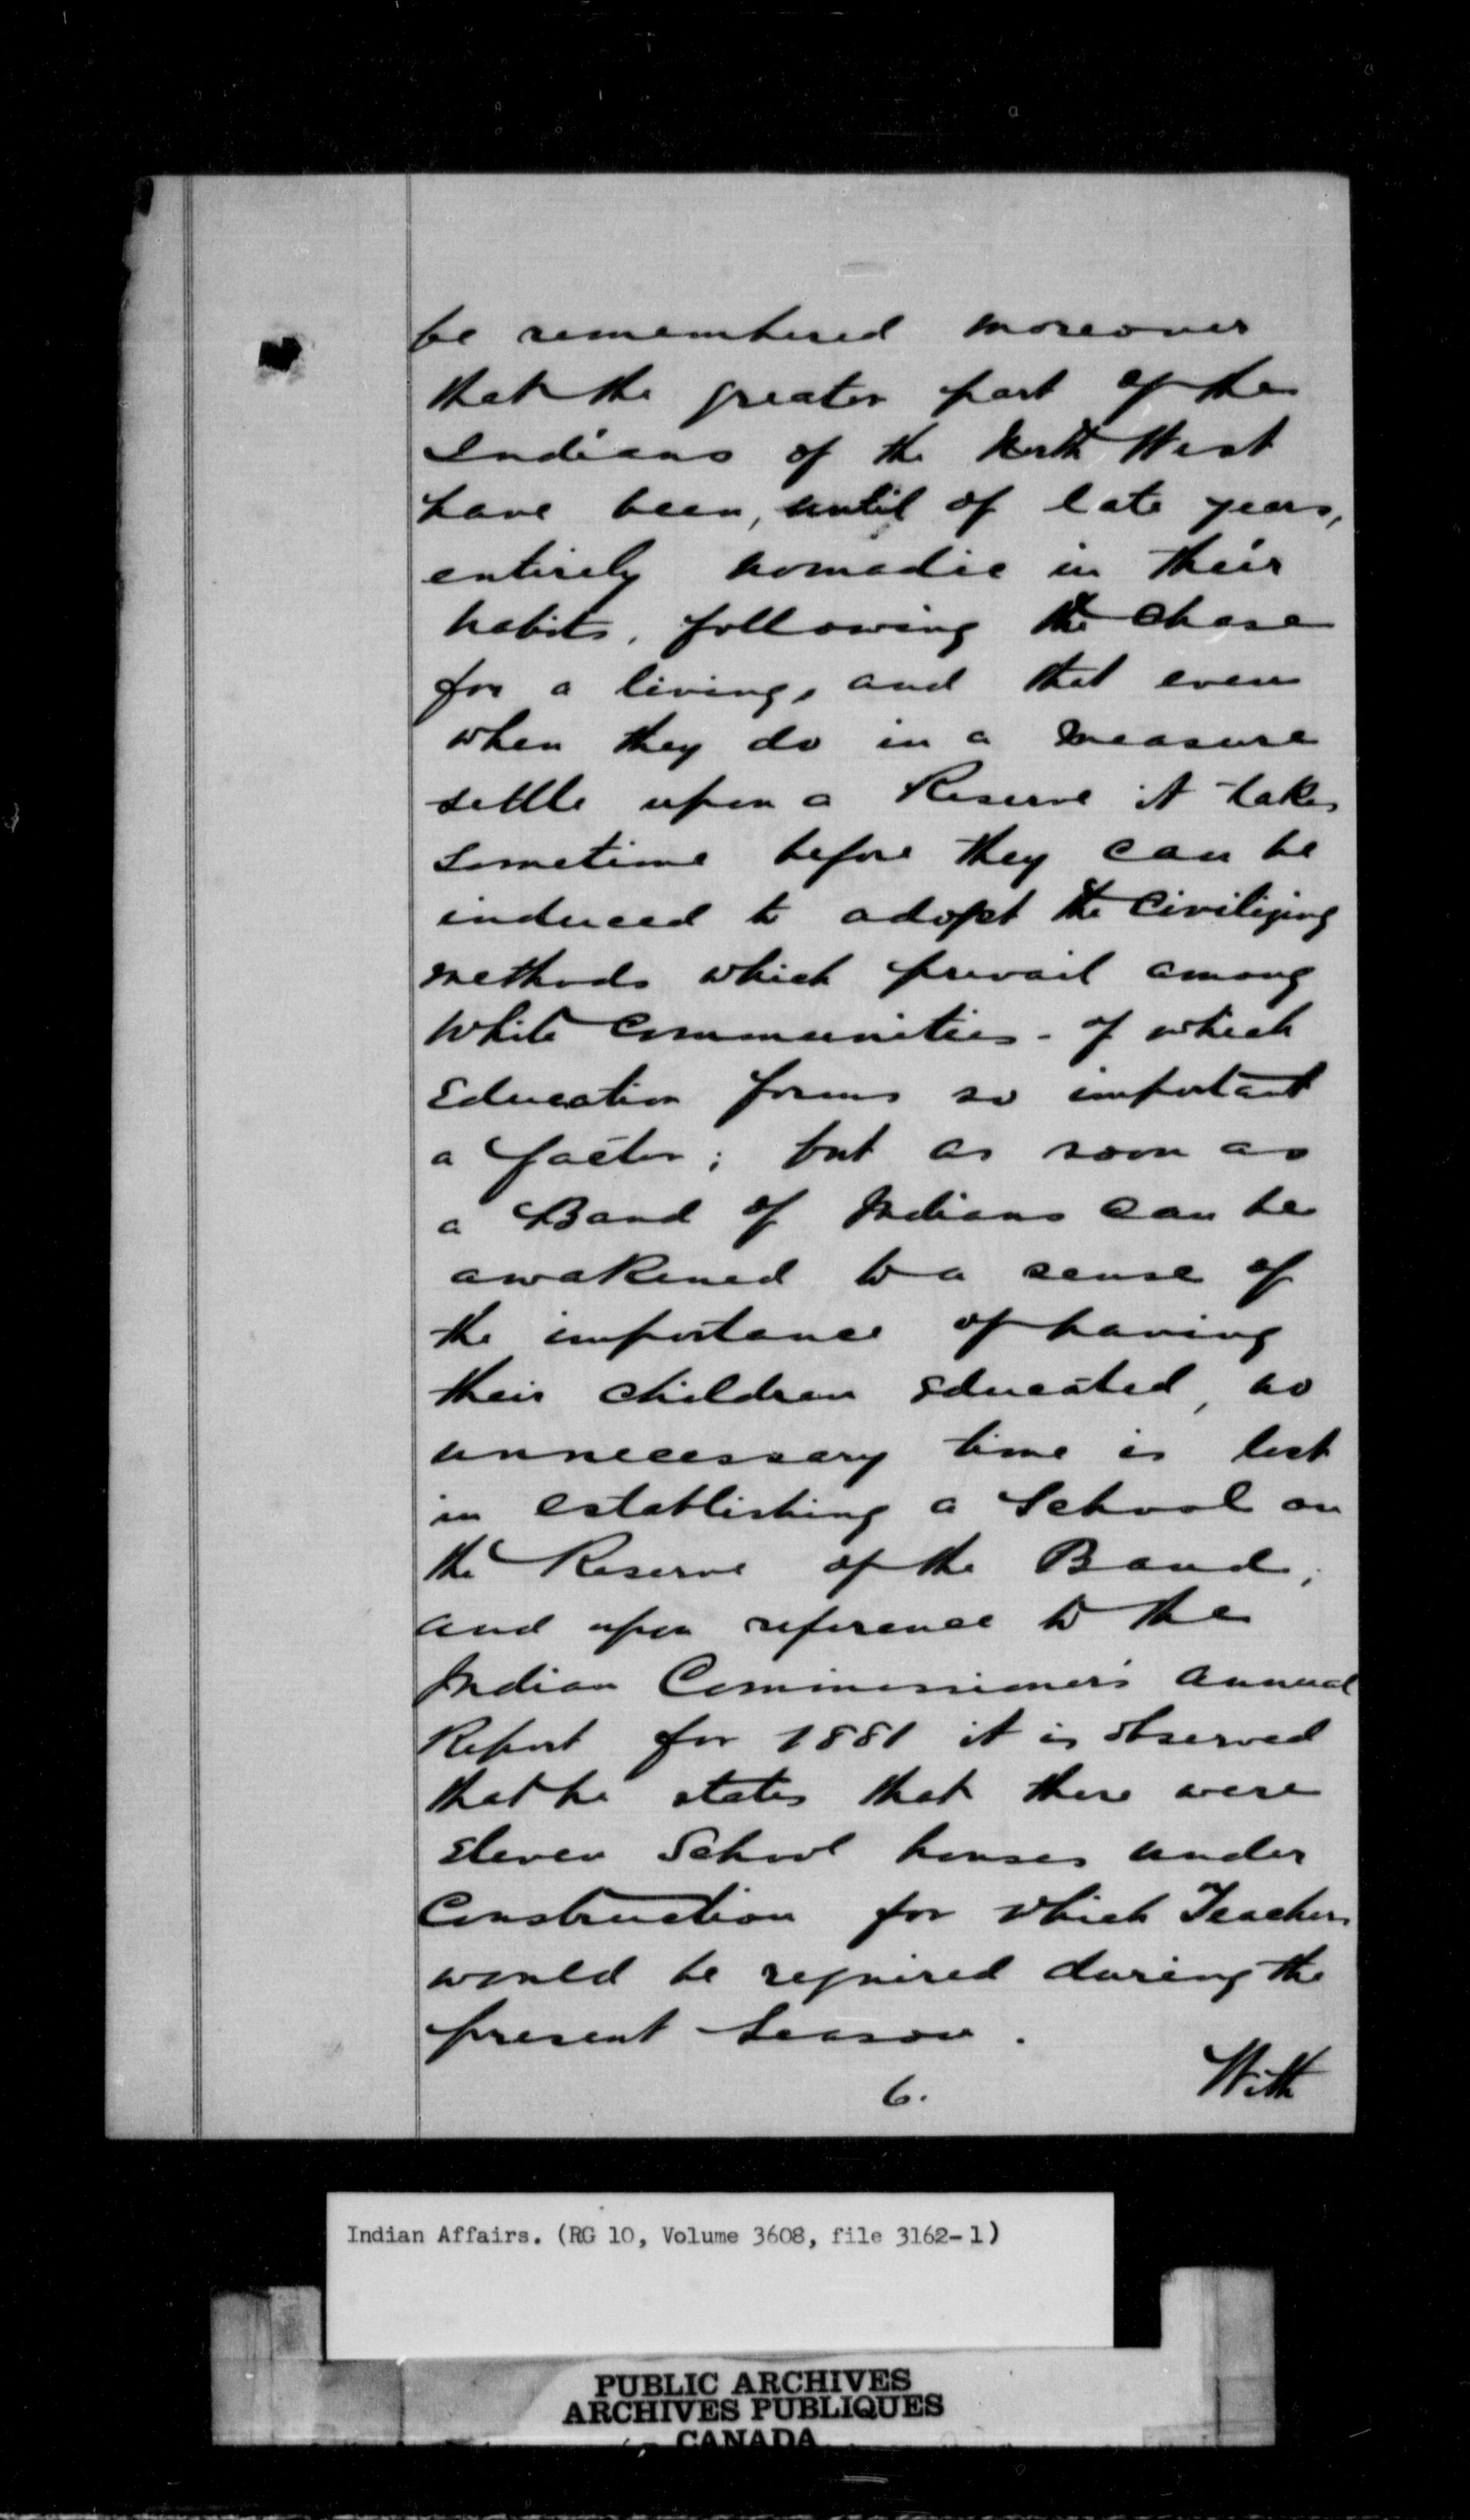 be remembered moreover
that the greater part of the
Indians of the North West
have been, until of late years,
entirely nomadic in their
habits, following the chase
for a living, and that even
when they do in a measure
settle upon a Reserve it takes
sometime before they can be
induced to adopt the Civilizing
methods which prevail among
White Communities - of which
Education forms so important
a factor; but as soon as
a Band of Indians can be
awakened to a sense of
the importance of having
their children Educated, no
unnecessary time is lost
in establishing a School on
the Reserve of the Band;
and upon reference to the
Indian Commissioner's Annual
Report for 1881 it is observed
that he states that there were
Eleven School houses under
Construction for which Teachers
would be required during the
present Season.
6.
With
Indian Affairs. (RG 10, Volume 3608, file 3162-1)
PUBLIC ARCHIVES
ARCHIVES PUBLIQUES
CANADA